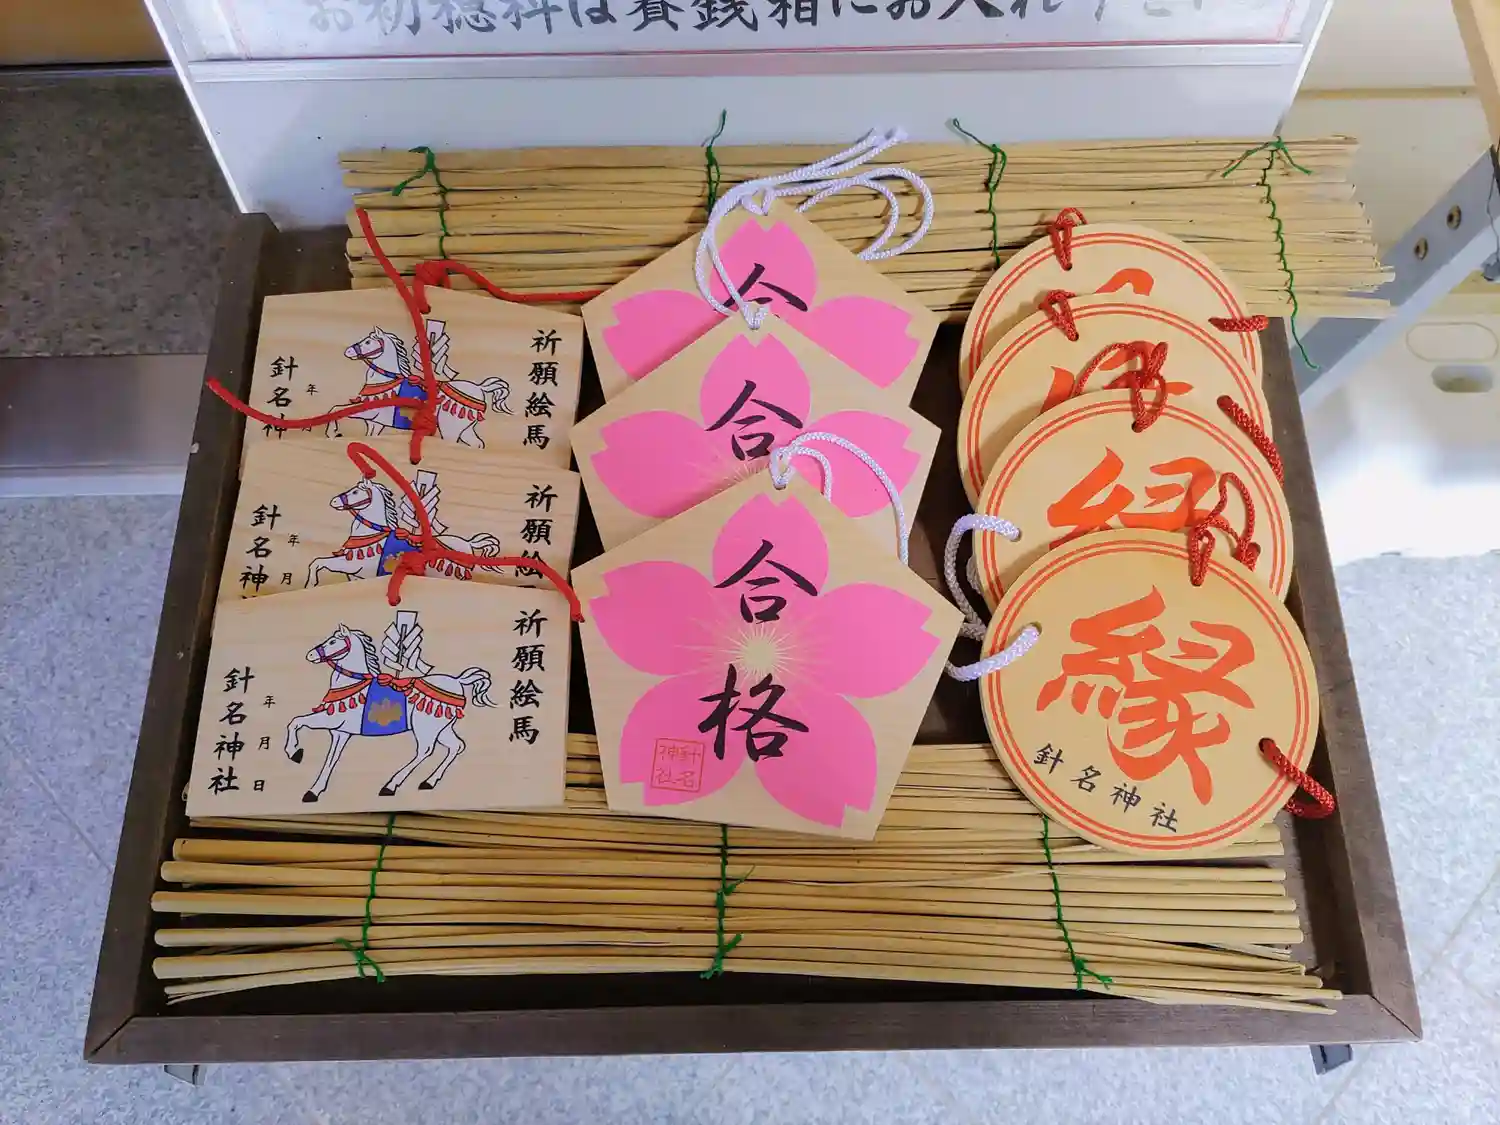 お初穂料は賽銭箱にお入れ下さい
祈願絵馬
年
針名神
祈願絵
年
月
針名神
祈願絵馬
年
月
日
針名神社
合
合
合格
針名
神社
縁
縁
針名神社